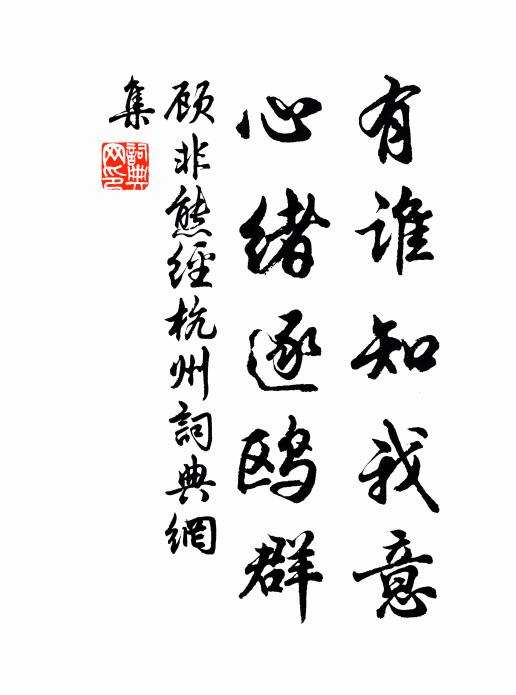 有谁知我意
心绪逐鸥群
顾非熊经杭州詞典網
集
詞典网印